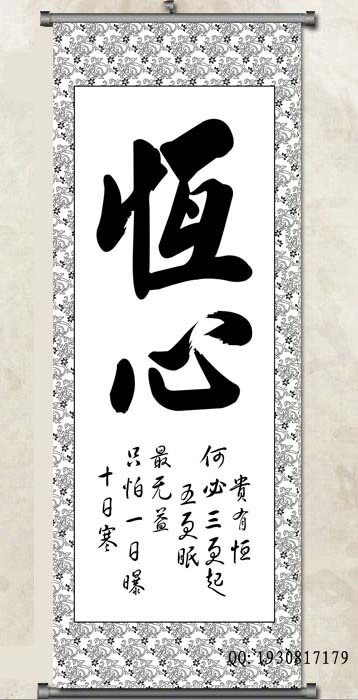 恆心
貴有恒
何必三更起
五更眠
最无益
只怕一日曝
十日寒
QQ: 1930817179